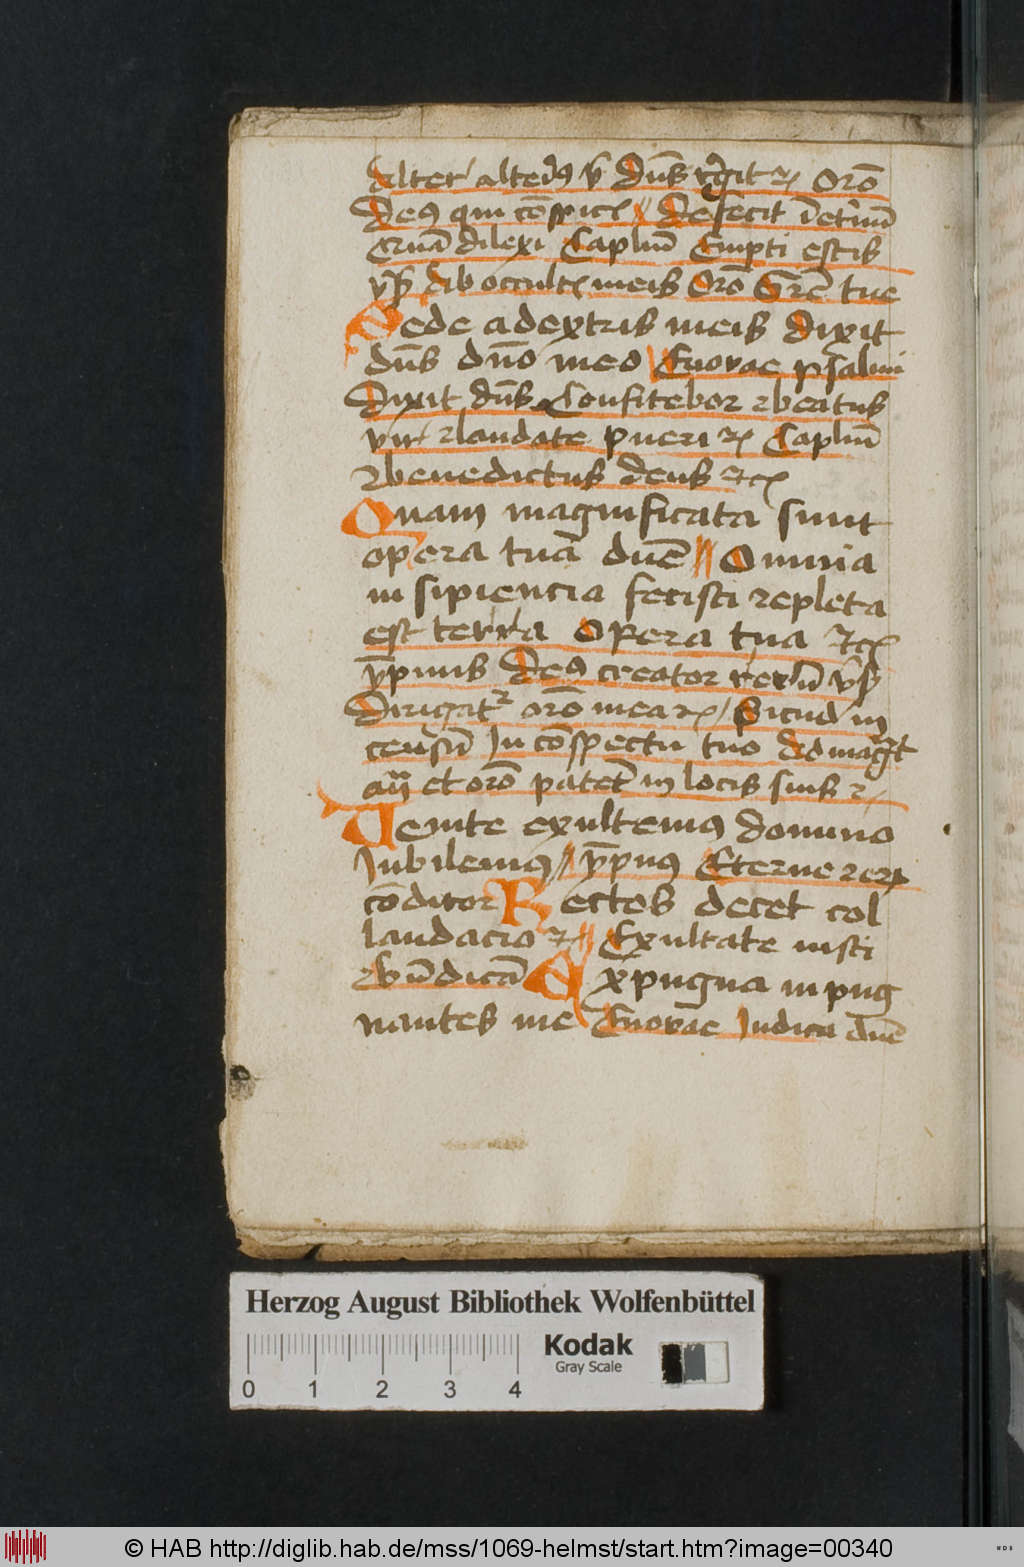 Alter alteri9 v̄ Dn̄s regit ⁊c Orō
De9 qui cōspic Defecit ī et̄nū
Cruā dilexi Caplm̄ Empti estis
v̄s Ab occultꝭ meis Orō Grām tue
Sede a dextris meis dixit
dn̄s dn̄o meo Euovae psalmi
Dixit dn̄s Confitebor ⁊ beatus
vir ⁊ laudate pueri ⁊c Caplm̄
⁊ benedictus deus ⁊c
Quam magnificata sunt
opera tua dn̄e Omnia
in sipiencia fecisti repleta
est terra Opera tua ⁊c
ȳpnus De9 creator rerū v̄s
Dirigat᷑ orō mea ⁊c Sicud in
censū In cōspectu tuo Ad magt
añ et orō patet in locis suis ⁊
Uenite exultemus domino
Jubilemus ȳpnus Eterne rerꝝ
cōditor Rectos decet col
laudacio ⁊ Exultate iusti
⁊ bn̄dicā Expugna inpug
nantes me Euovae Judica dn̄e
Herzog August Bibliothek Wolfenbüttel
Kodak
Gray Scale
0 1 2 3 4
© HAB http://diglib.hab.de/mss/1069-helmst/start.htm?image=00340